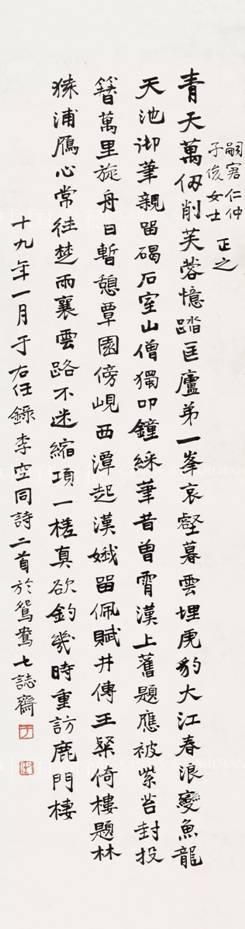 嗣宻仁仲
子俊女士 正之
青天萬仞削芙蓉憶踏匡廬弟一峯哀壑暮雲埋虎豹大江春浪變魚龍
天池御筆親留碣石室山僧獨叩鐘綵筆昔曾霄漢上舊題應被紫苔封投
簪萬里旋舟日暫憩蕈園傍峴西潭起漢娥留佩賦井傳王粲倚樓題林
猿浦鴈心常往楚雨襄雲路不迷縮項一槎真欲釣幾時重訪鹿門棲
十九年一月于右任錄李空同詩二首於鴛鴦七誌齋